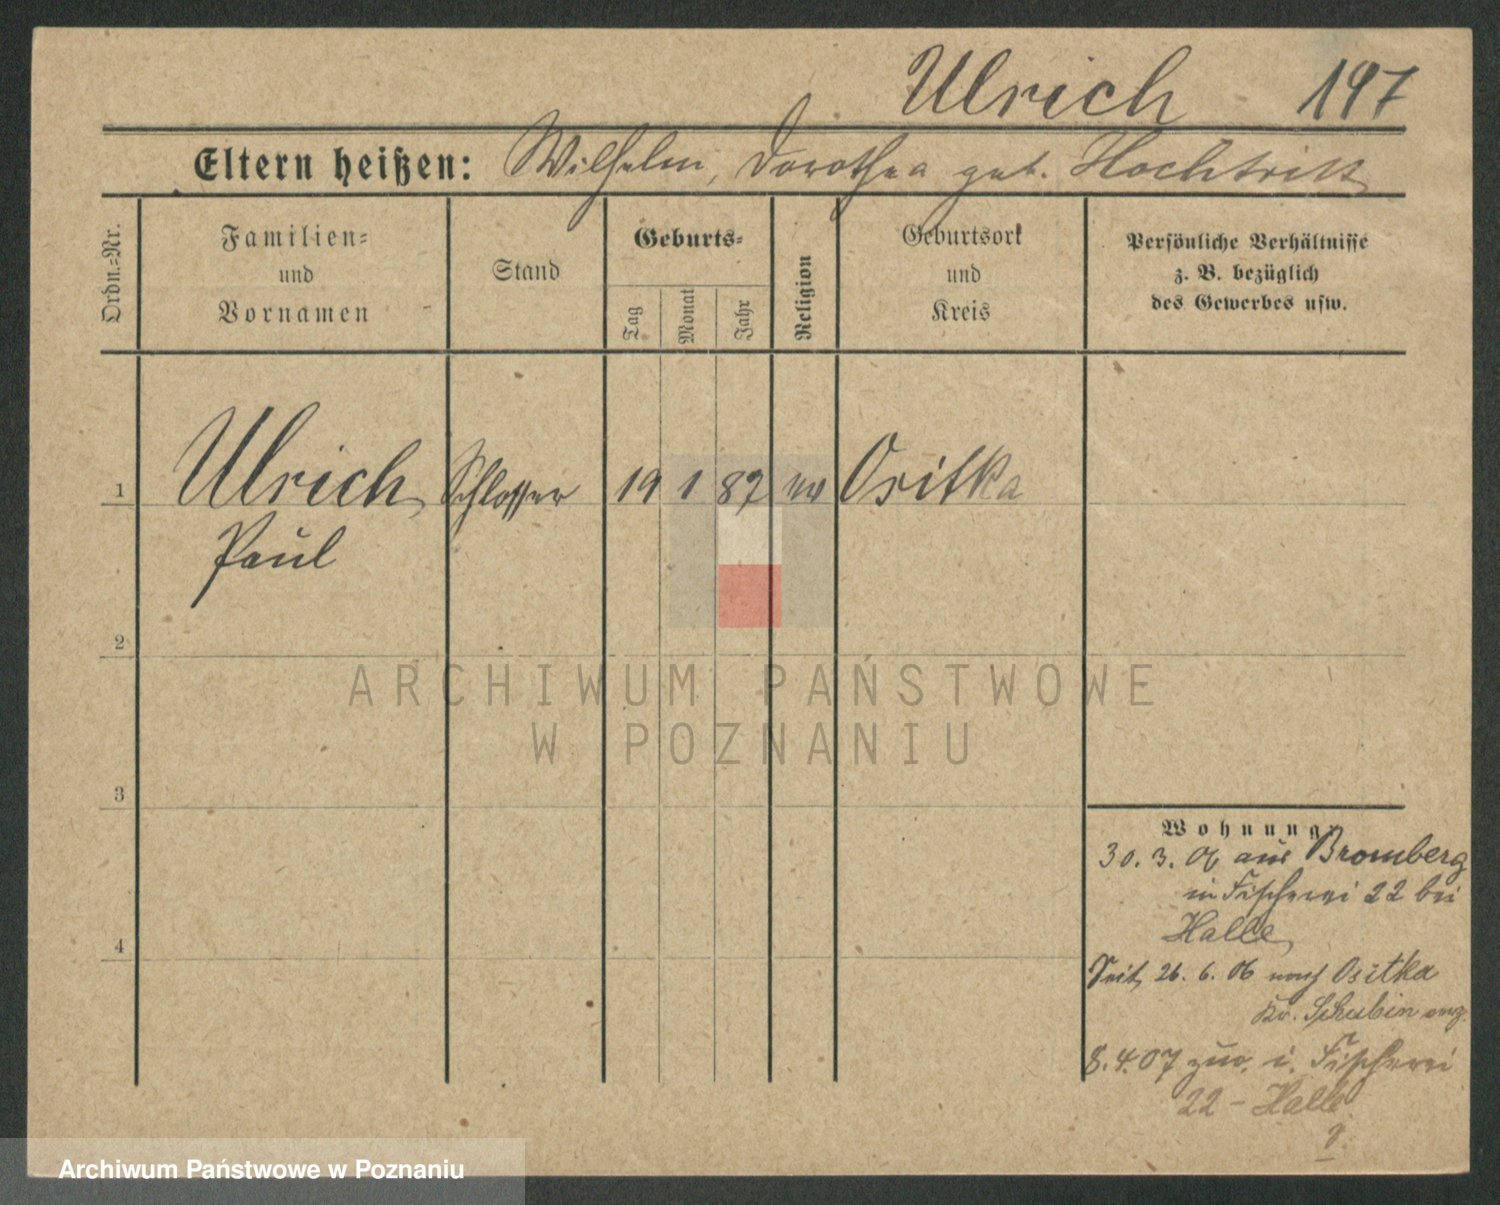 Ulrich 197
Eltern heißen: Wilhelm, Dorothea geb. Hochtritt
Ordn.-Nr.
Familien-
und
Vornamen
Stand
Geburts-
Tag
Monat
Jahr
Religion
Geburtsort
und
Kreis
Persönliche Verhältnisse
z. B. bezüglich
des Gewerbes usw.
1 Ulrich Schlosser 19 1 87 ev Ositka
Paul
2
3
4
Wohnung
30. 3. 06 aus Bromberg
in Fischerei 22 bei
Halle
Seit 26. 6. 06 nach Ositka
Kr. Schubin
8. 4. 07 zur. i. Fischerei
22 - Halle
ARCHIWUM PAŃSTWOWE
W POZNANIU
Archiwum Państwowe w Poznaniu